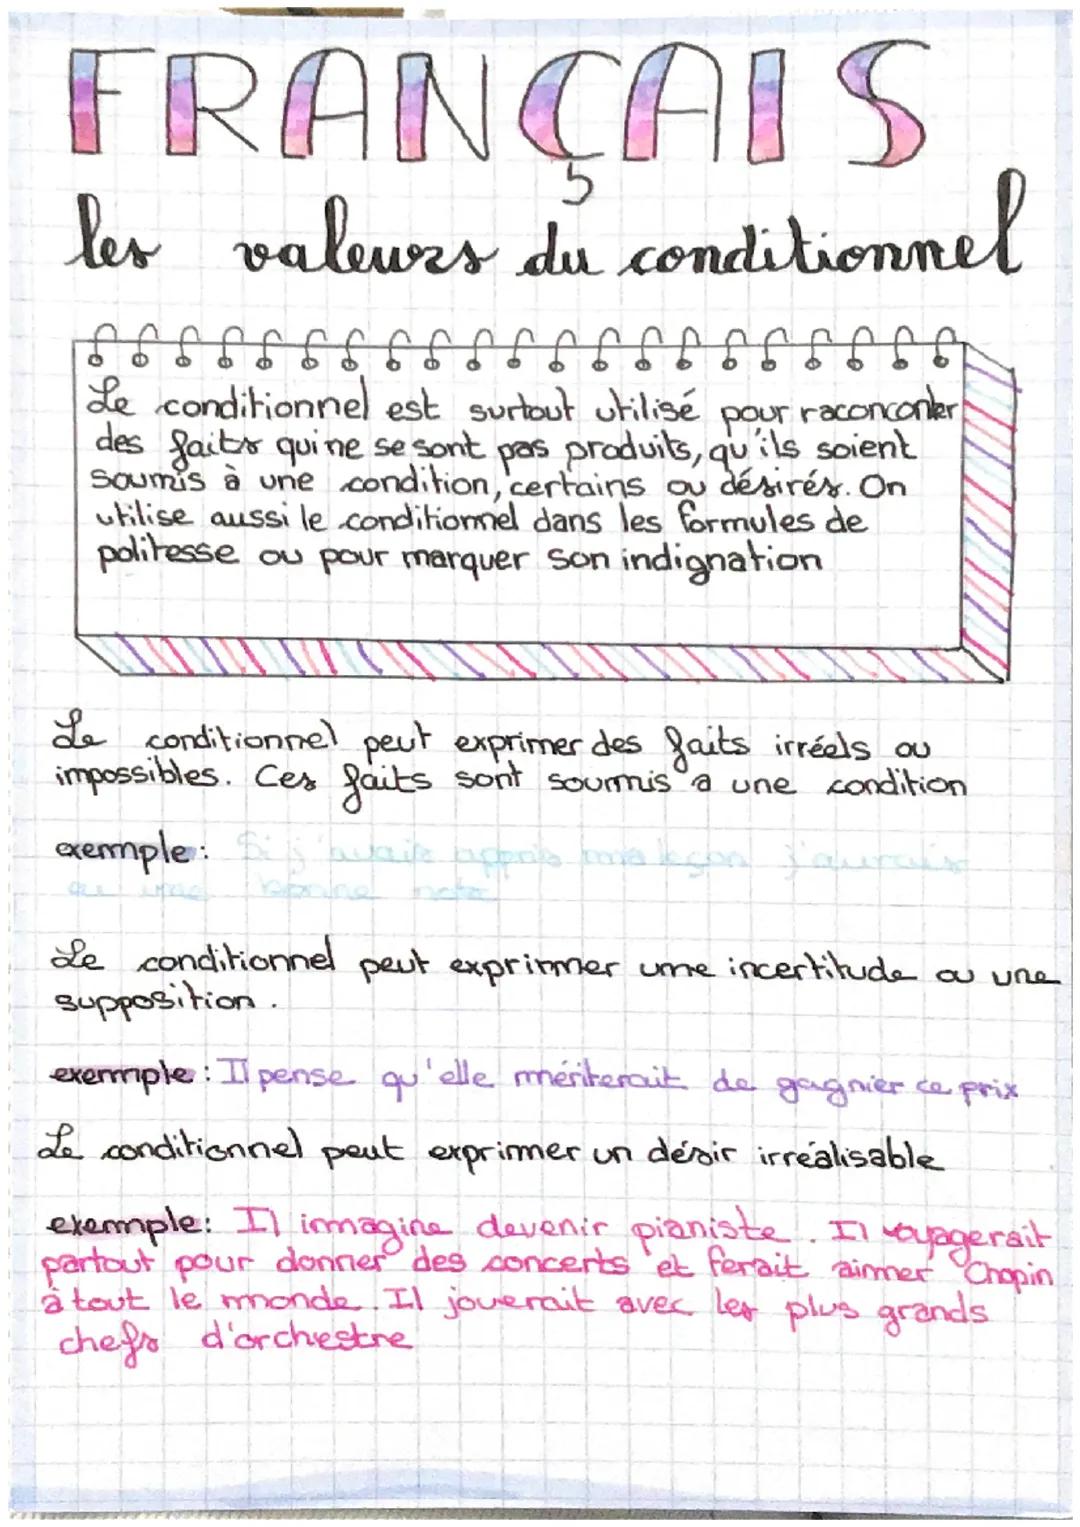 FRANÇAIS
les valeurs du conditionnel
Le conditionnel est surtout utilisé pour raconconter
des faits qui ne se sont pas produits, qu'ils soient
soumis à une condition, certains ou désirés. On
utilise aussi le conditionnel dans les formules de
politesse ou pour marquer son indignation
Le conditionnel peut exprimer des faits irréels ou
impossibles. Ces faits sont soumis à une condition
exemple: Si j'avais appris ma leçon j'aurais
eu une bonne note
Le conditionnel peut exprimer une incertitude ou une
supposition.
exemple: Il pense qu'elle mériterait de gagnier ce prix
Le conditionnel peut exprimer un désir irréalisable
exemple: Il imagine devenir pianiste. Il voyagerait
partout pour donner des concerts et ferait aimer Chopin
à tout le monde. Il jouerait avec les plus grands
chefs d'orchestre